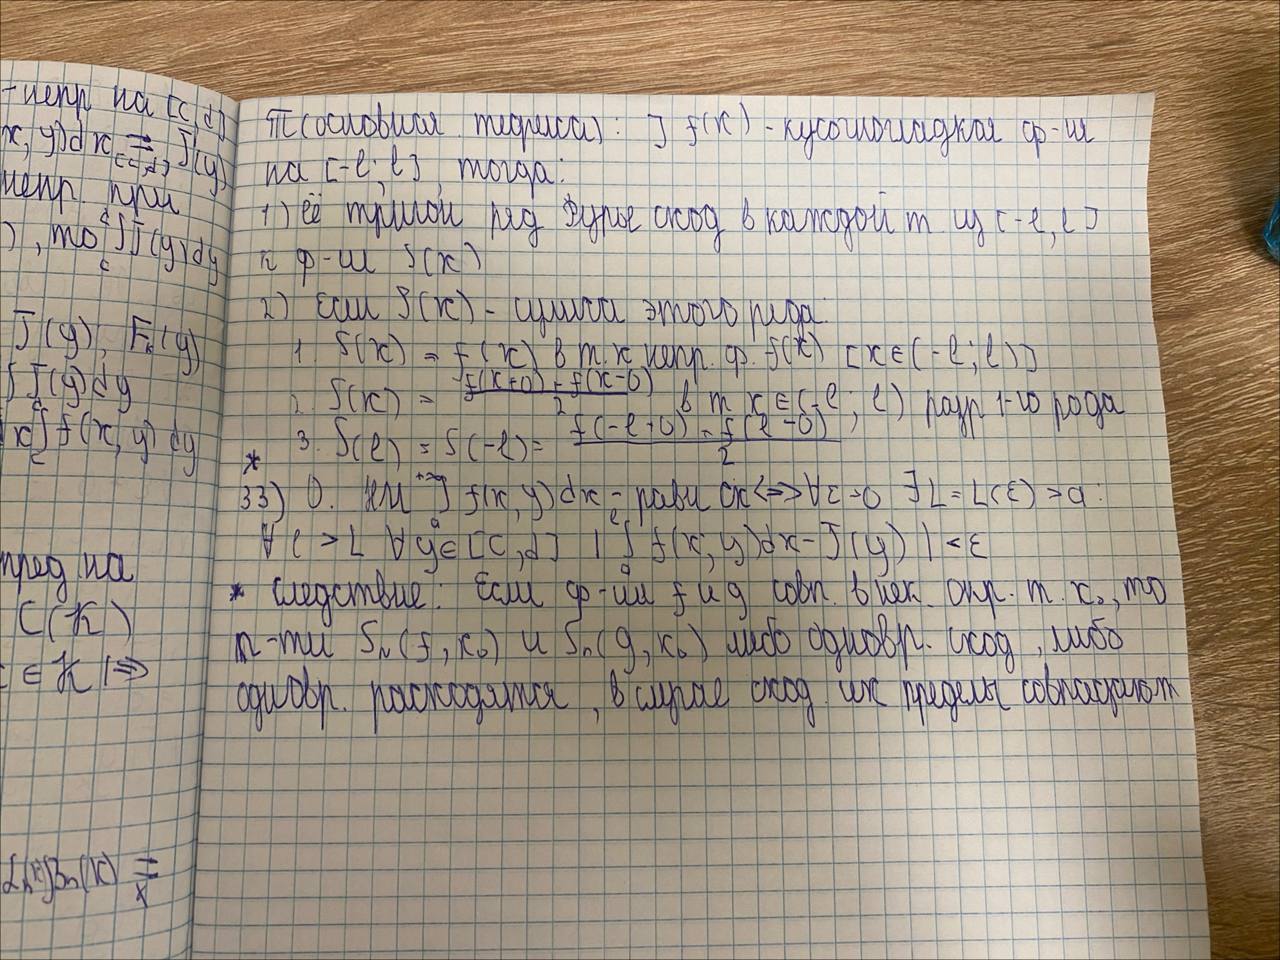 -непр на [c,d]
x,y)dx ⇉ J(y)
[c,d]
непр. при
), то ∫J(y)dy
J(y), F(y)
∫J(y)dy
∫f(x,y)dy
пред на
C(K)
∈ K | ⇒
Bn(x) ⇉
x
T(основная теорема): ] f(x) - кусочногладкая ф-ия
на [-l; l], тогда:
1) её триг ряд Фурье сход в каждой т из [-l, l]
к ф-ии S(x)
2) Если S(x) - сумма этого ряда:
1. S(x) = f(x) в т. x непр. ф. f(x) [x∈(-l; l)]
2. S(x) = f(x+0)+f(x-0) / 2 в т x∈(-l; l) разр 1-го рода
3. S(l) = S(-l) = f(-l+0)+f(l-0) / 2
*
33) О. НИ ∫ₐ^+∞ f(x,y)dx - равн сх <=> ∀ε>0 ∃L=L(ε)>a:
∀l>L ∀y∈[c,d] |∫ₐ^l f(x,y)dx-J(y)|<ε
* следствие: Если ф-ии f и g совп. в нек. окр. т. x₀, то
п-ти Sn(f,x₀) и Sn(g,x₀) либо одновр. сход, либо
одновр. расходятся, в случае сход. их пределы совпадают